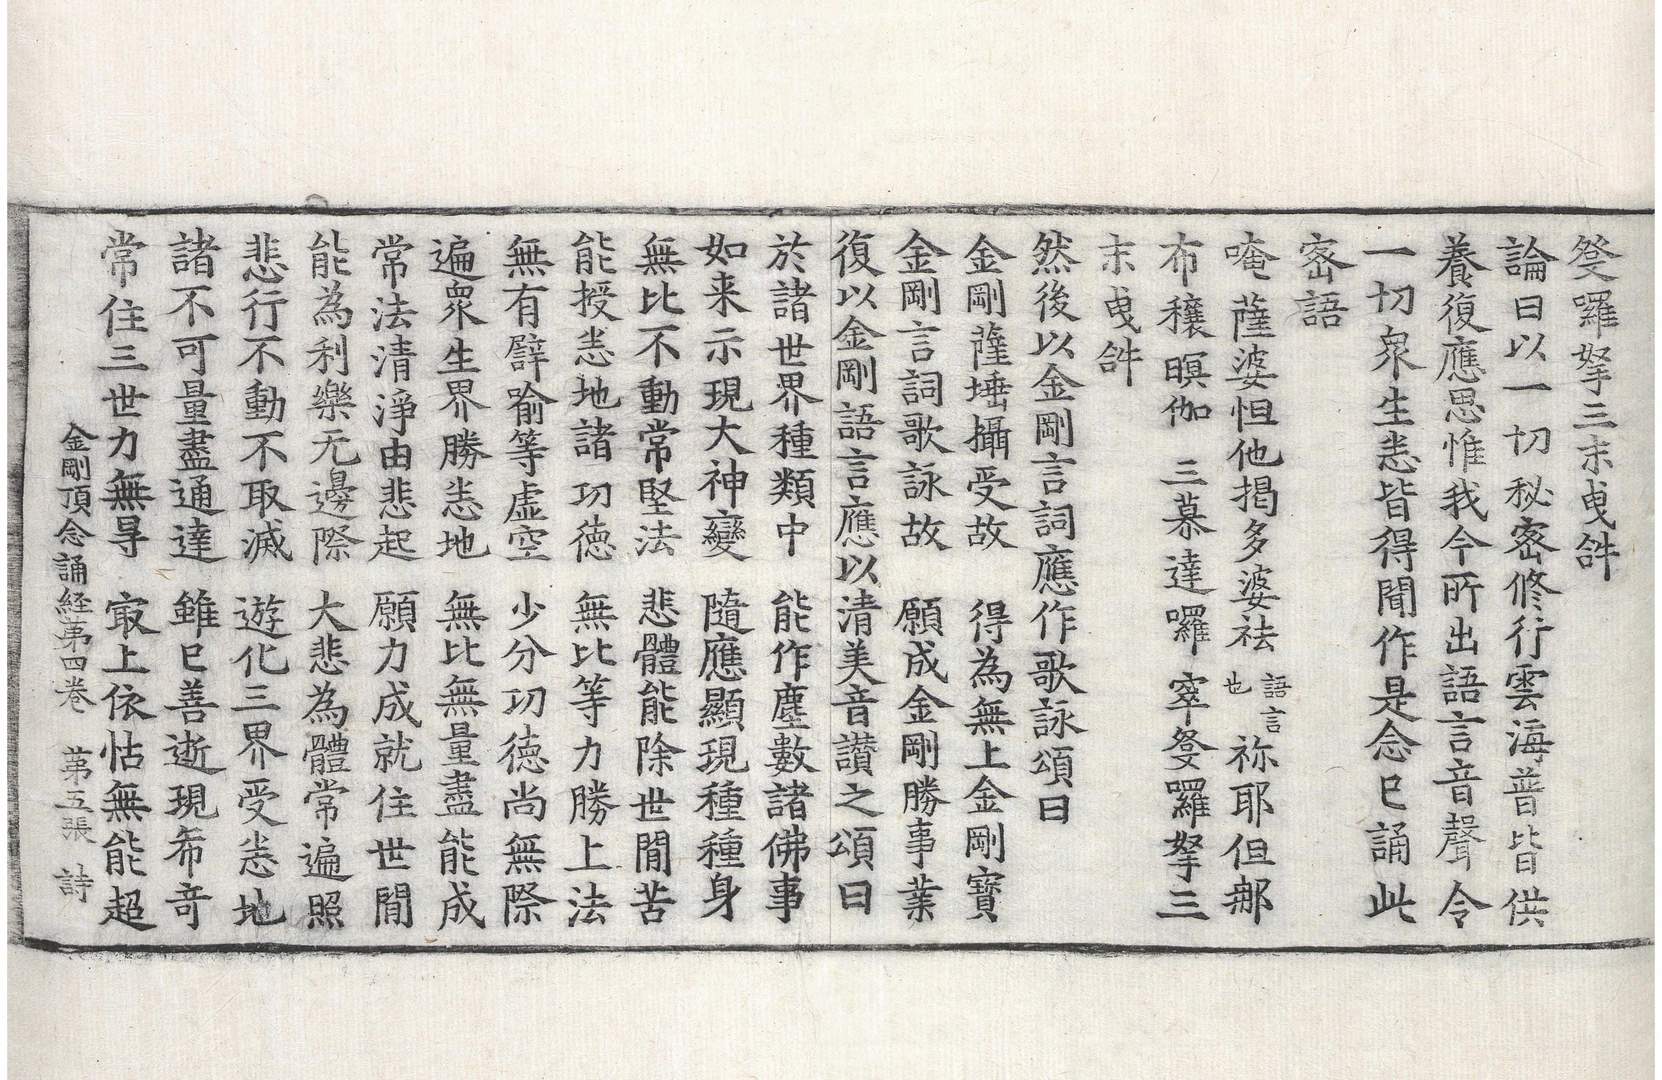 發囉拏三末曳𤙖
論曰以一切秘密修行雲海普皆供
養復應思惟我今所出語言音聲令
一切衆生悉皆得聞作是念已誦此
密語
唵薩婆怛他揭多婆祛語言也祢耶但那
布穰暝伽三慕達囉窣發囉拏三
末曳𤙖
然後以金剛言詞應作歌詠頌曰
金剛薩埵攝受故　得為無上金剛寶
金剛言詞歌詠故　願成金剛勝事業
復以金剛語言應以清美音讚之頌曰
於諸世界種類中　能作塵數諸佛事
如来示現大神變　隨應顯現種種身
無比不動常堅法　悲體能除世間苦
能授悉地諸功德　無比等力勝上法
無有譬喻等虛空　少分功德尚無際
遍衆生界勝悉地　無比無量盡能成
常法清淨由悲起　願力成就住世間
能為利樂无邊際　大悲為體常遍照
悲行不動不取滅　遊化三界受悉地
諸不可量盡通達　雖已善逝現希奇
常住三世力無㝵　冣上依怙無能超
金剛頂念誦経苐四卷　苐五張　詩